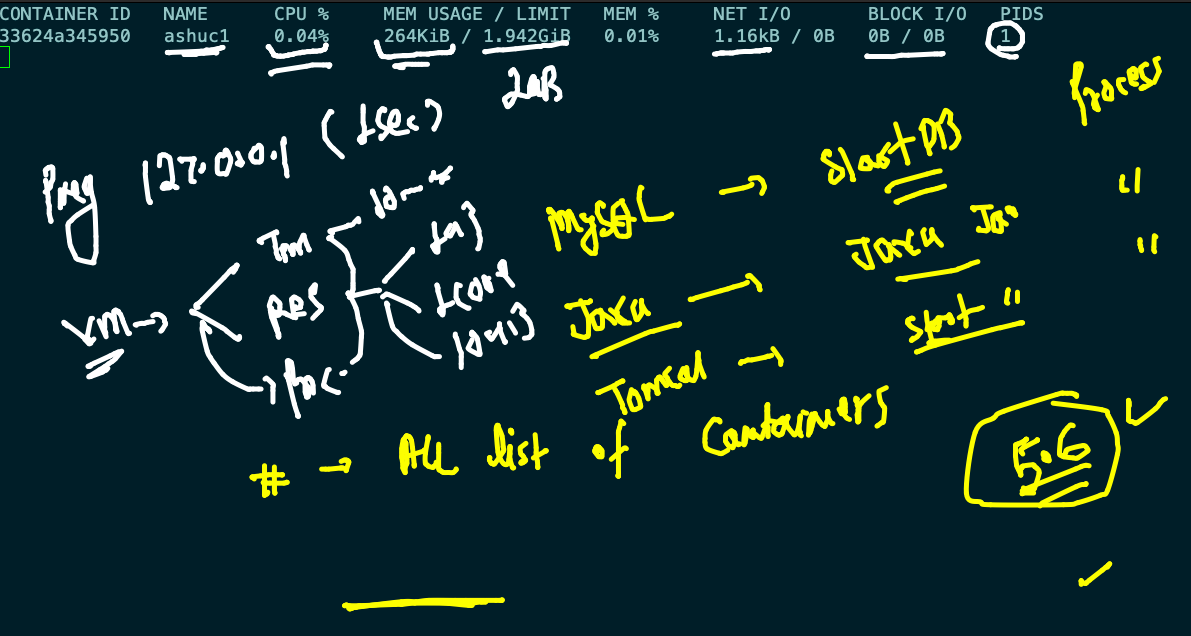 CONTAINER ID NAME CPU % MEM USAGE / LIMIT MEM % NET I/O BLOCK I/O PIDS
33624a345950 ashuc1 0.04% 264KiB / 1.942GiB 0.01% 1.16kB / 0B 0B / 0B 1
2GB
Process
127.0.0.1 (1sec)
mySQL → Start DB "
Java → Java Jar "
Tomcat → Start "
VM →
Res
Proc.
# → ALL list of Containers
5.6